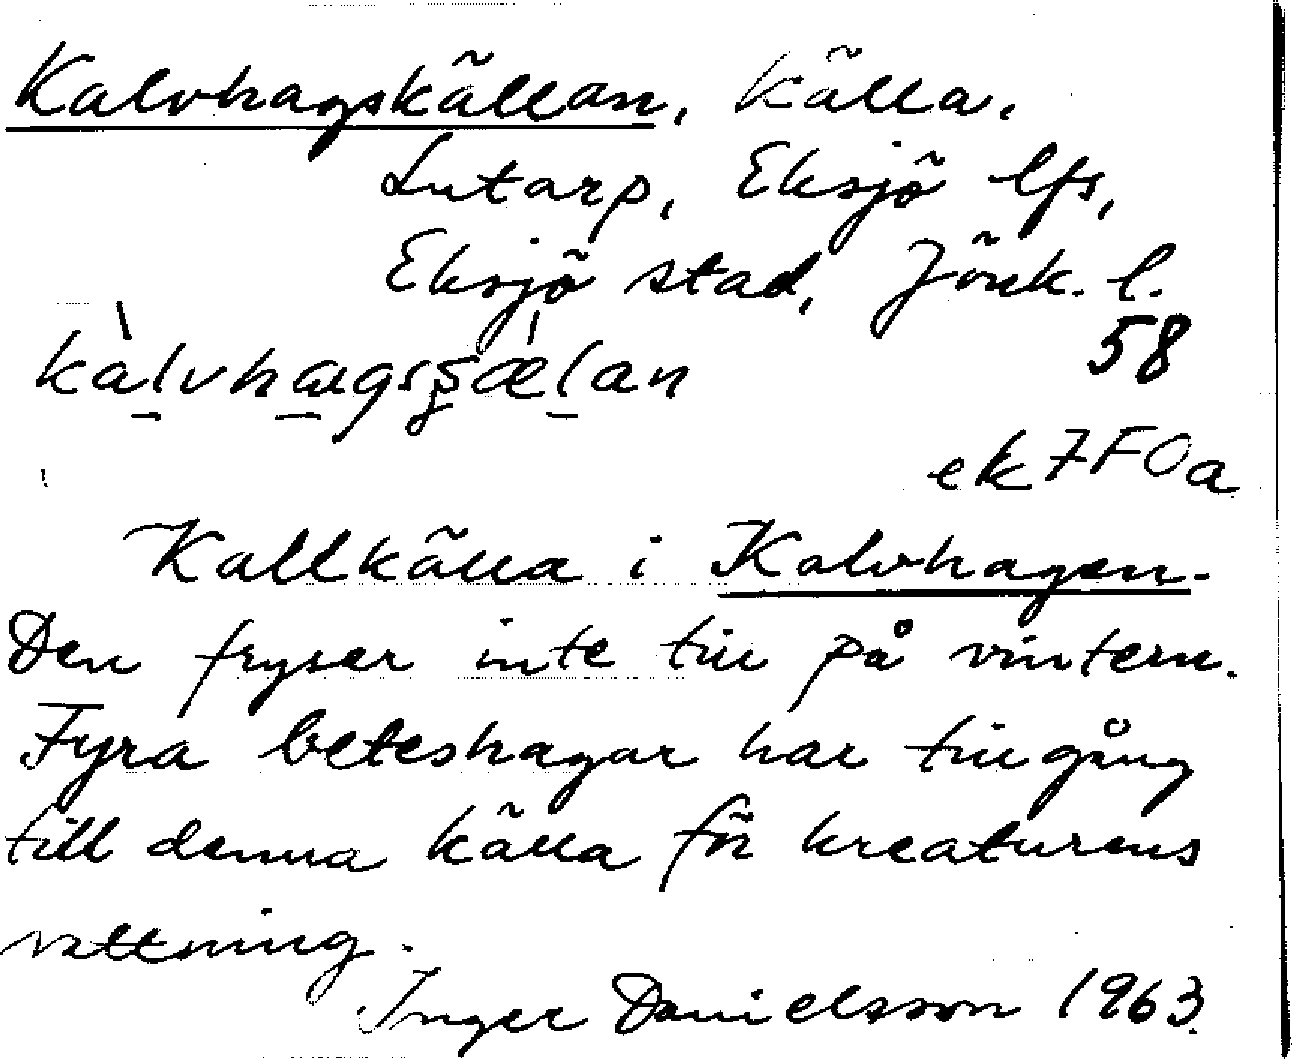 Kalvhagskällan, källa.
Lutarp, Eksjö lfs,
Eksjö stad, Jönk. l.
58
ek 7F0a
Kallkälla i Kalvhagen.
Den fryser inte till på vintern.
Fyra beteshagar har tillgång
till denna källa för kreaturens
vattning.
Inger Danielsson 1963.